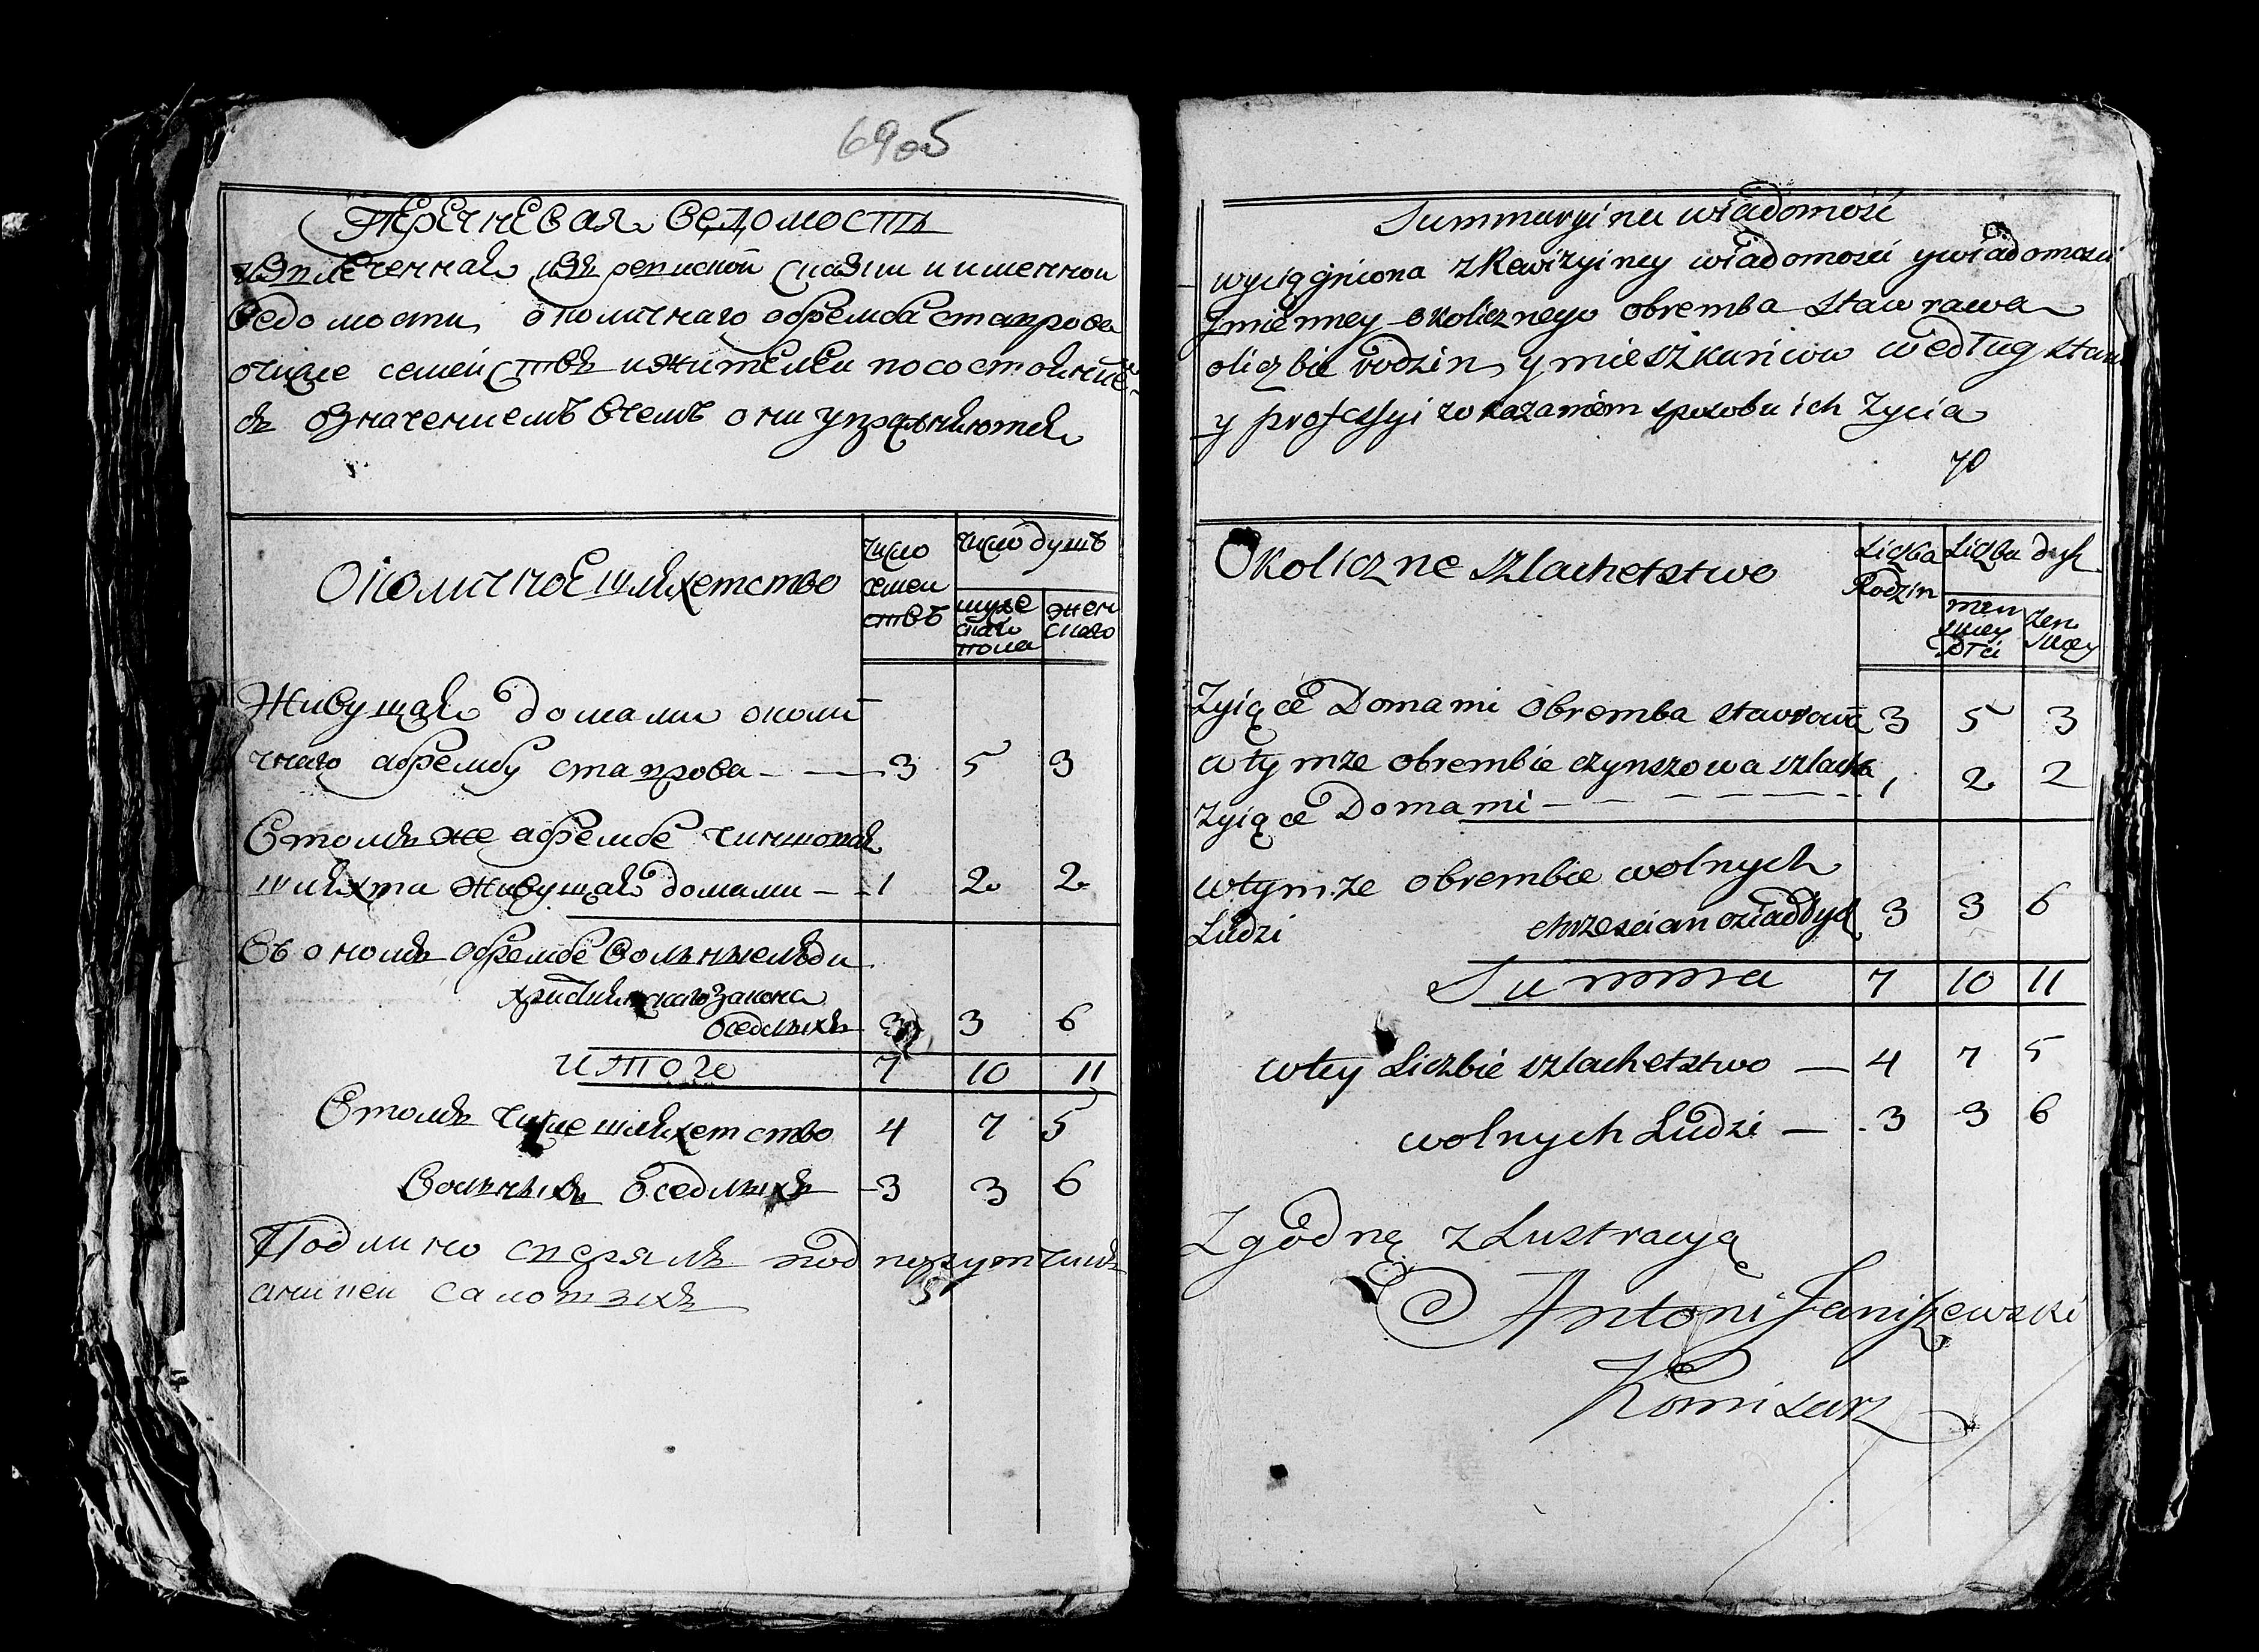 6905
Перечневая ведомость
извлеченная изъ ревиской скаски и именной
ведомости околичнаго обремба ставрова
очисле семействъ ижителей посостоянию
съ означениемъ вчемъ они упражняются
Околичное шляхетство
число
семей
ствъ
число душъ
муже
скаго
пола
жен
скаго
Живущая домами околи
чнаго обрембу ставрова - — 3 5 3
Втомъ же обрембе чиншовая
шляхта живущая домами - - 1 2 2
Въ ономъ обрембе вольныелюди
християнскагозакона
оседлыхъ 3 3 6
итого 7 10 11
Втомъ числе шляхетство 4 7 5
Вольныхъ оседлыхъ - 3 3 6
Подлино сверялъ подпорутчикъ
Summaryina wiadomość
wyciągniona zRewizyiney wiadomosci ywiadomosci
Jmienney okolicznego obremba Stawrawa
oliczbie rodzin y mieszkańcow według stanu
y professyi zokazaniem sposobu ich życia
70
Okoliczne szlachetstwo
Liczba
Rodzin
Liczba dusz
męn
skiey
płci
żen
skiey
Zyiące Domami obremba stawrowa 3 5 3
wtymze obrembie czynszowa szlachta
Zyiące Domami - - - - - 1 2 2
wtymze obrembie wolnych
Ludzi chrzescian osiadłych 3 3 6
Summa 7 10 11
wtey Liczbie szlachetstwo — 4 7 5
wolnych Ludzi — 3 3 6
Zgodnę zLustracyą
Antoni Janiszewski
Komisarz